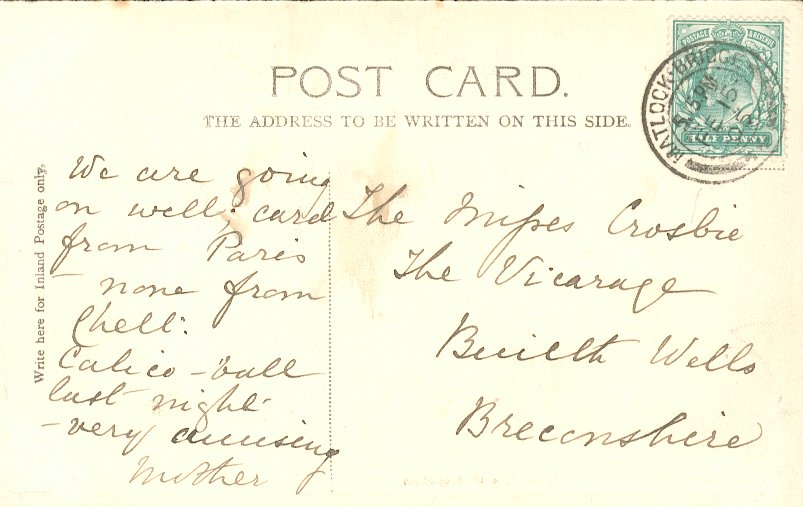 POST CARD.
THE ADDRESS TO BE WRITTEN ON THIS SIDE.
POSTAGE & REVENUE
HALF PENNY
MATLOCK-BRIDGE
Write here for Inland Postage only.
We are going
on well; card
from Paris
- none from
Chell:
Calico - ball
last night
- very amusing
Mother
The Misses Crosbie
The Vicarage
Builth Wells
Breconshire